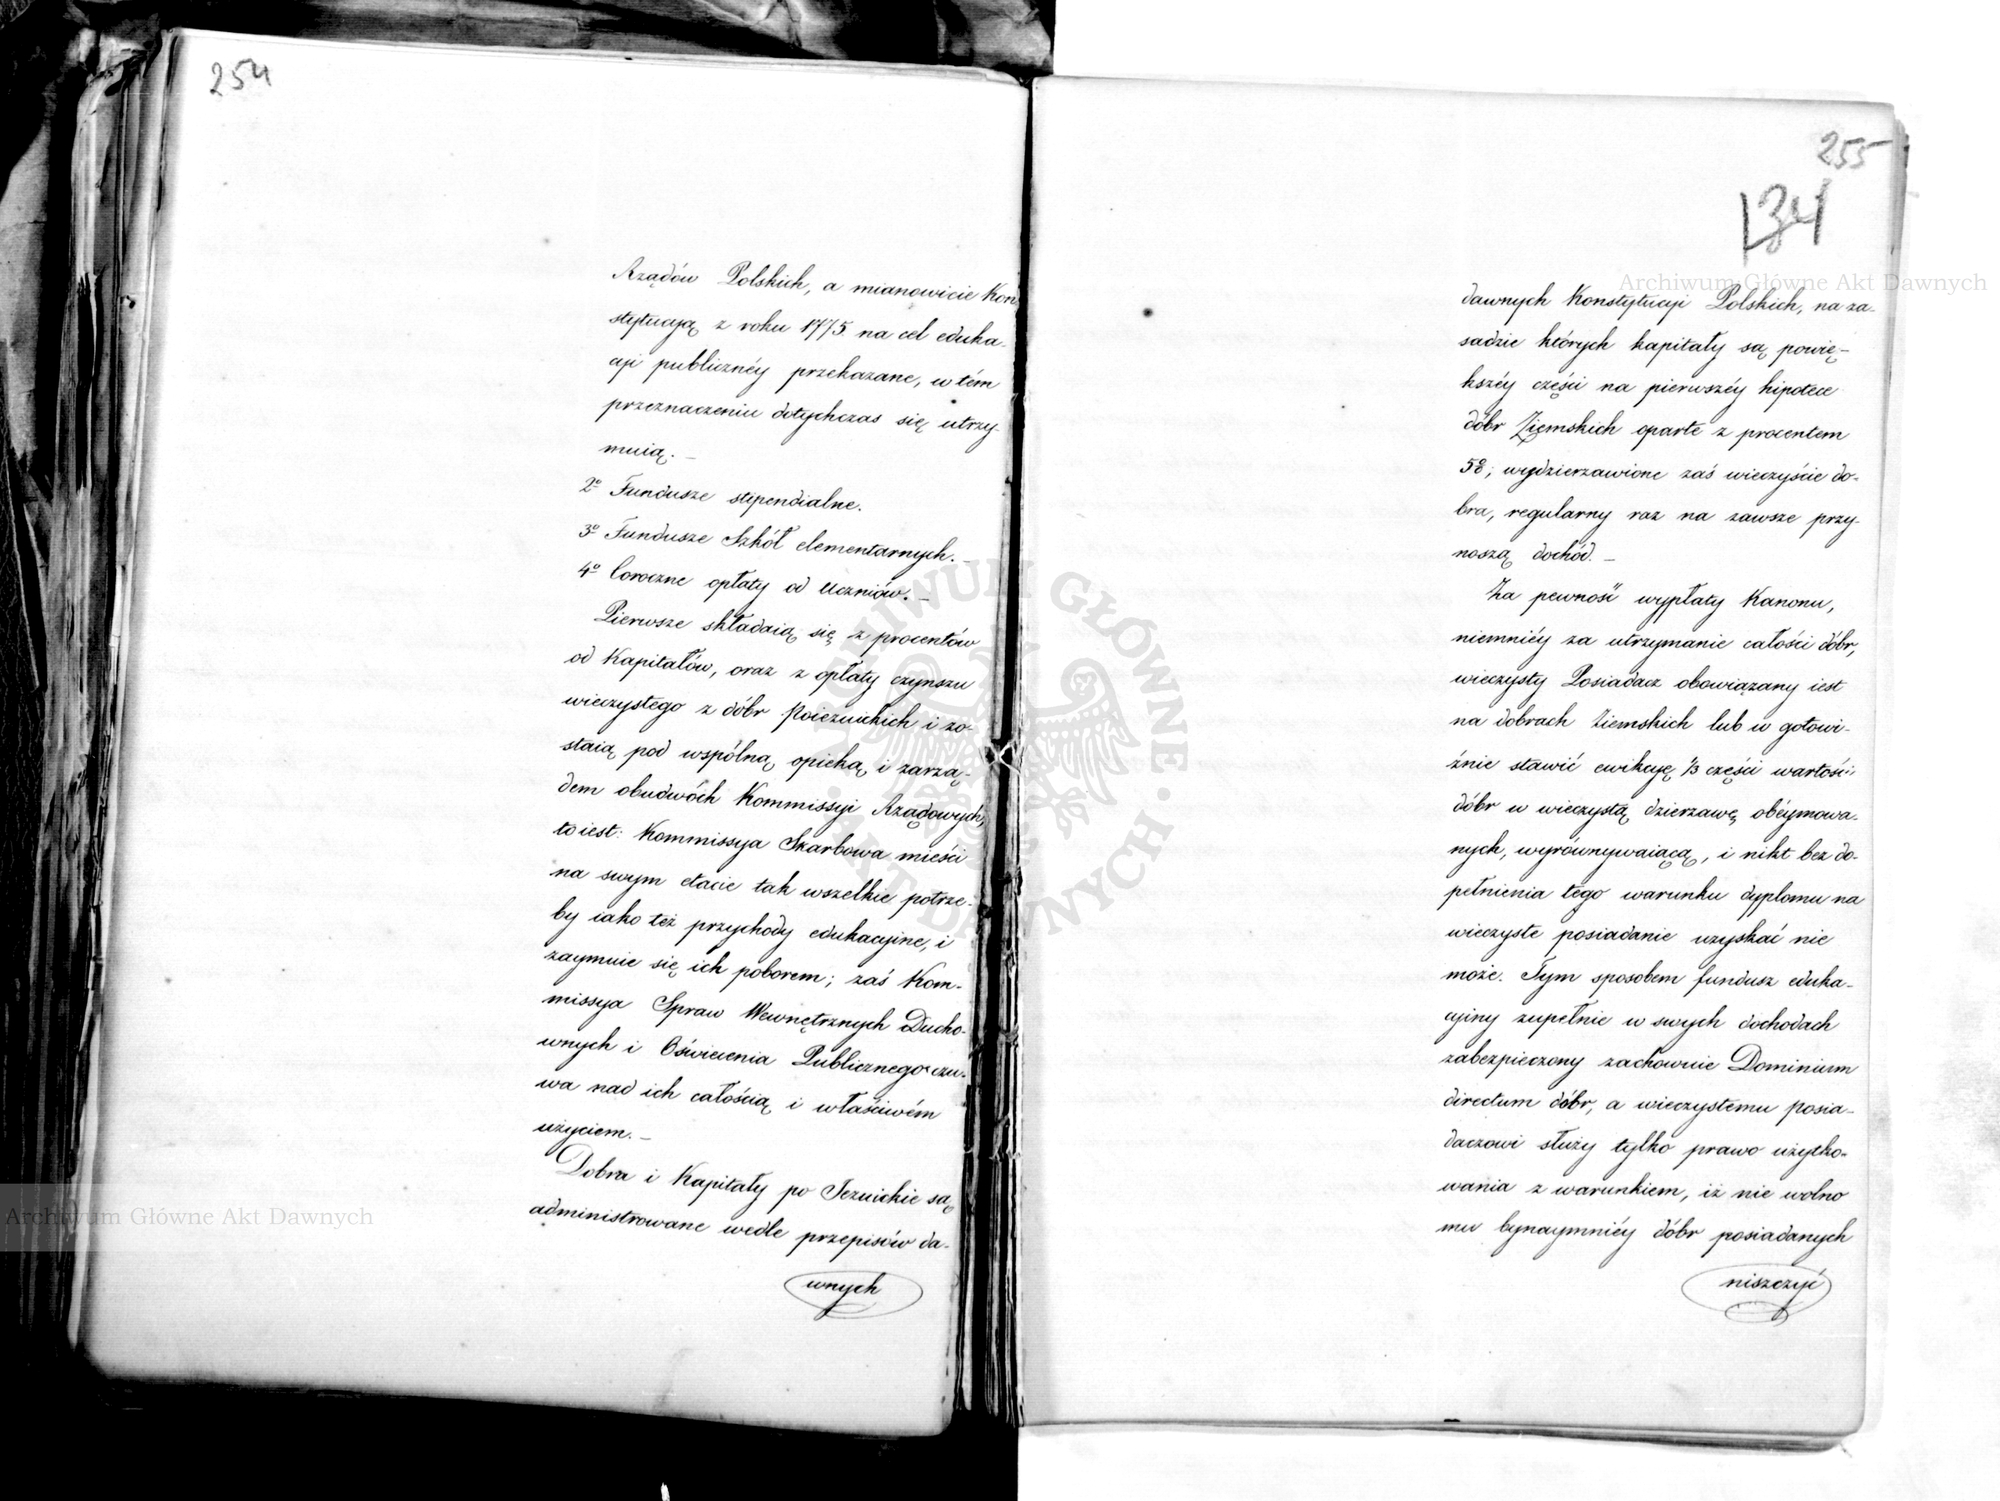 254
Rządów Polskich, a mianowicie Kon-
stytucją z roku 1775 na cel eduka-
cyi publicznéy przekazane, w tém
przeznaczeniu dotychczas się utrzy-
muią. _
2º Fundusze stipendialne.
3º Fundusze Szkół elementarnych. _
4º Coroczne opłaty od Uczniów. _
Pierwsze składaią się z procentów
od Kapitałów, oraz z opłaty czynszu
wieczystego z dóbr Poiezuickich i zo-
staią pod wspólną opieką i zarzą-
dem obudwóch Kommissyi Rządowych,
to iest: Kommissya Skarbowa mieści
na swym etacie tak wszelkie potrze-
by iako też przychody edukacyine, i
zaymuie się ich poborem; zaś Kom-
missya Spraw Wewnętrznych Ducho-
wnych i Oświecenia Publicznego czu-
wa nad ich całością i właściwém
użyciem. _
Dobra i Kapitały po Jezuickie są
administrowane wedle przepisów da-
wnych
255
134
dawnych Konstytucyi Polskich, na za-
sadzie których kapitały są powię-
kszéy części na pierwszéy hipotece
dóbr Ziemskich oparte z procentem
5%; wydzierzawione zaś wieczyście do-
bra, regularny raz na zawsze przy-
noszą dochód. _
Za pewność wypłaty Kanonu,
niemniéy za utrzymanie całości dóbr,
wieczysty Posiadacz obowiązany iest
na dobrach Ziemskich lub w gotowi-
źnie stawić ewikcyę 1/3 części wartości
dóbr w wieczystą dzierzawę obéymowa-
nych, wyrównywaiącą, i nikt bez do-
pełnienia tego warunku dyplomu na
wieczyste posiadanie uzyskać nie
może. Tym sposobem fundusz eduka-
cyiny zupełnie w swych dochodach
zabezpieczony zachowuie Dominium
directum dóbr, a wieczystemu posia-
daczowi służy tylko prawo użytko-
wania z warunkiem, iż nie wolno
mu bynaymniéy dóbr posiadanych
niszczyć
Archiwum Główne Akt Dawnych
Archiwum Główne Akt Dawnych
ARCHIWUM GŁÓWNE · AKT DAWNYCH ·